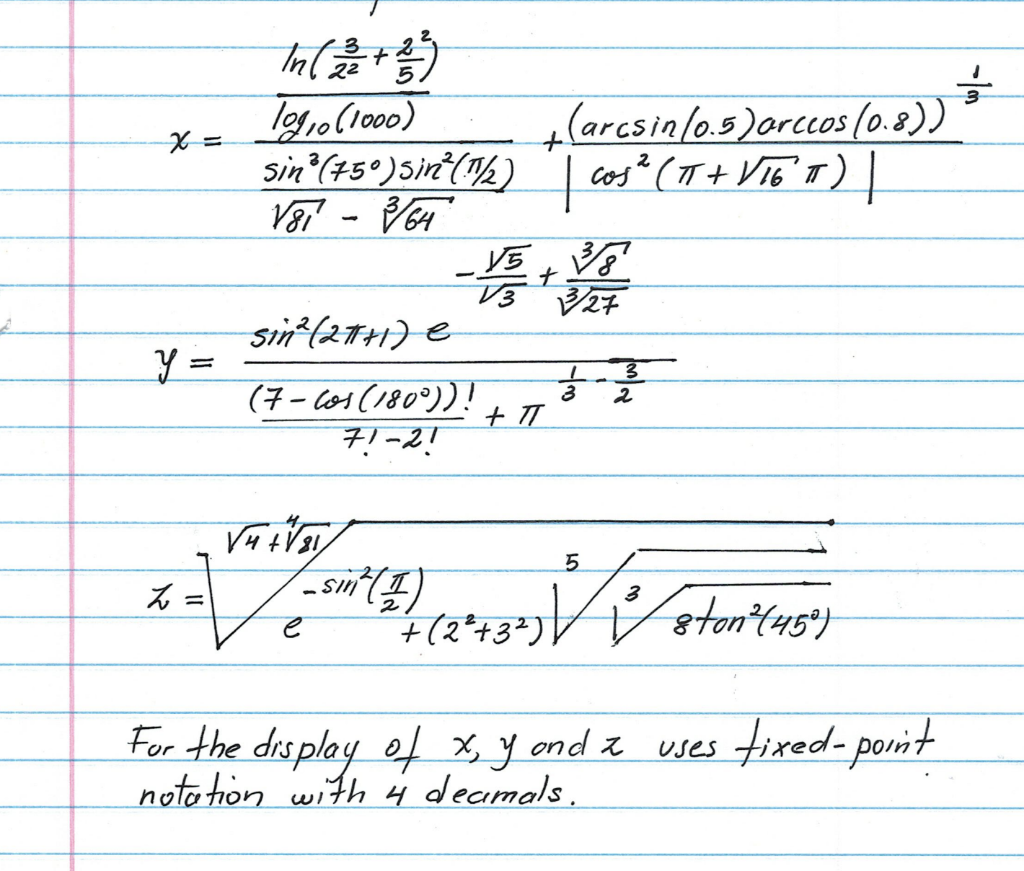 x = \frac{\frac{ln(\frac{3}{2^2} + \frac{2^2}{5})}{log_{10}(1000)}}{\frac{sin^3(75°) sin^2(π/2)}{\sqrt{81} - \sqrt[3]{64}}} + \frac{(arcsin(0.5) arccos(0.8))^{\frac{1}{3}}}{| cos^2(π + \sqrt{16} π) |}
y = \frac{sin^2(2π+1) e^{-\frac{\sqrt{5}}{\sqrt{3}} + \frac{\sqrt[3]{8}}{\sqrt[3]{27}}}}{\frac{(7 - cos(180°))!}{7! - 2!} + π^{\frac{1}{3} - \frac{3}{2}}}
z = \sqrt[\sqrt{4} + \sqrt[4]{81}]{e^{-sin^2(\frac{π}{2})} + (2^2 + 3^2) \sqrt[5]{\sqrt[3]{8 tan^2(45°)}}}
For the display of x, y and z uses fixed-point
notation with 4 decimals.